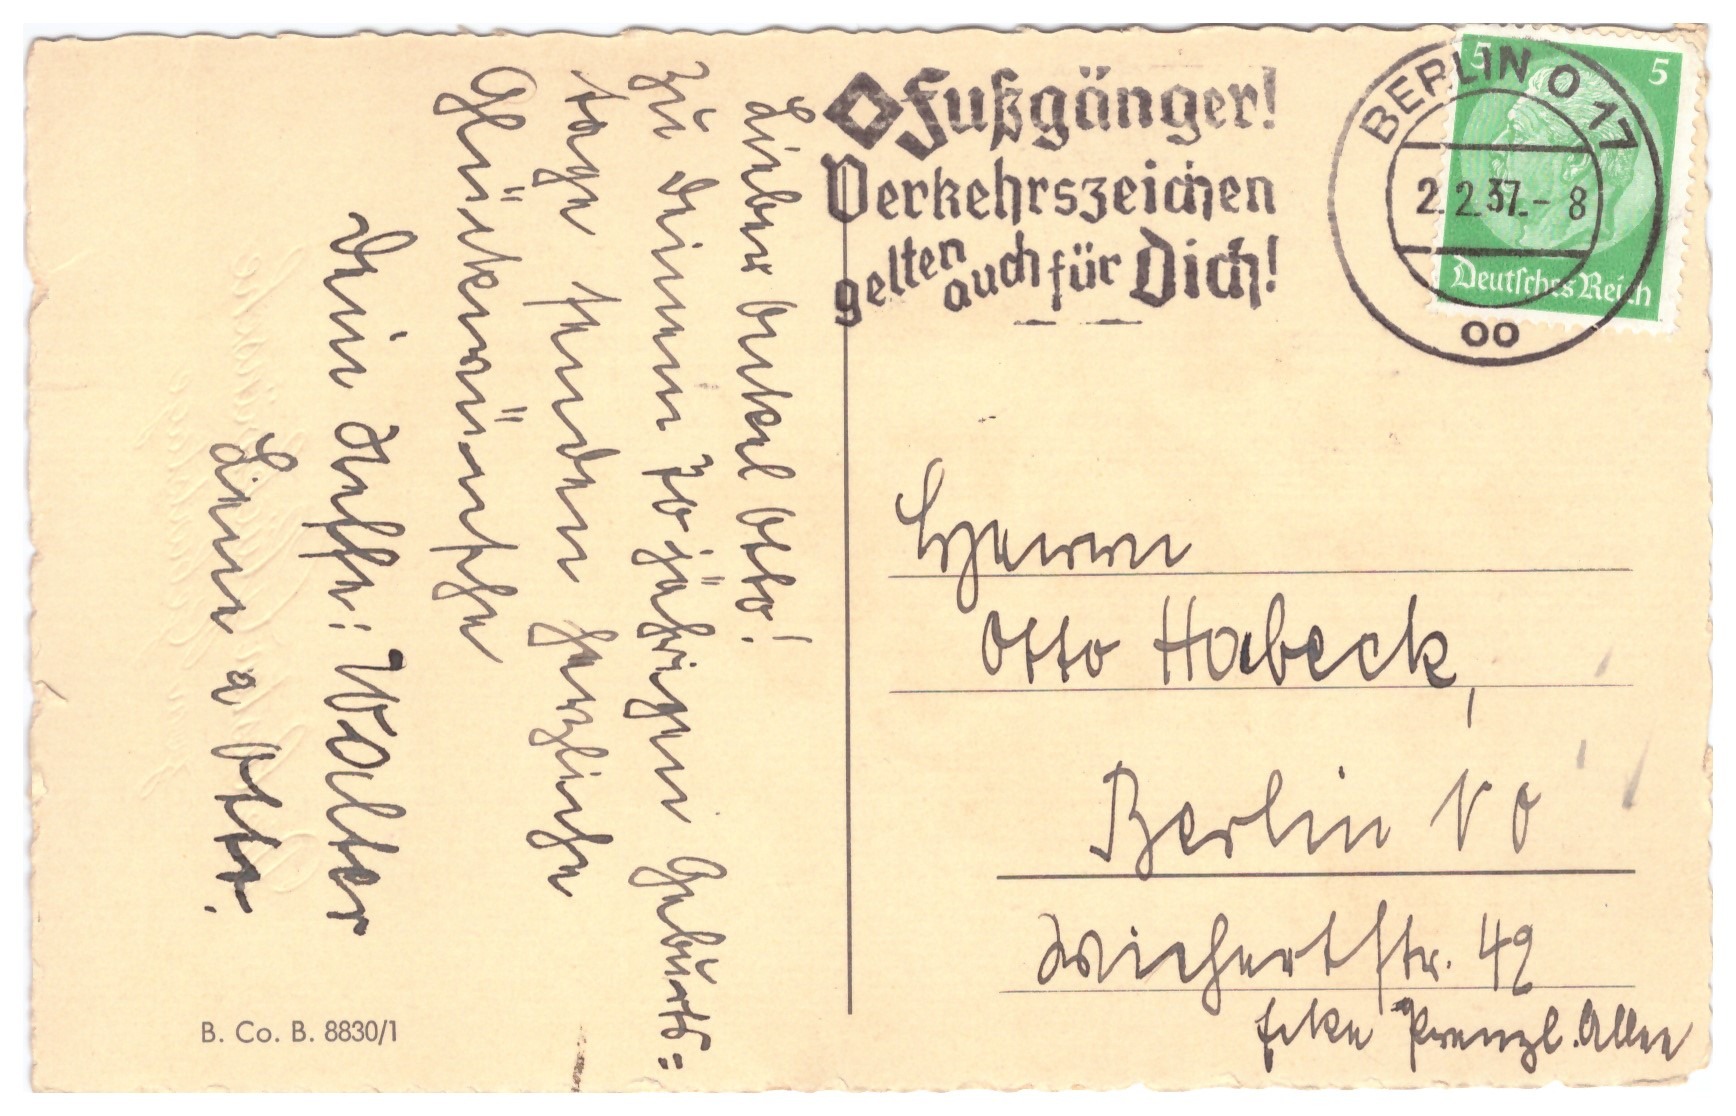 Lieber Onkel Otto!
Zu Deinem 70 jährigen Geburts=
tage senden herzliche
Glückwünsche
Dein Neffe: Walter
Lene a Otto.
B. Co. B. 8830/1
Fußgänger!
Verkehrszeichen
gelten auch für Dich!
BERLIN O 17
2.2.37.-8
oo
5 5
Deutsches Reich
Herrn
Otto Habeck,
Berlin NO
Wichertstr. 49
Ecke Prenzl. Allee